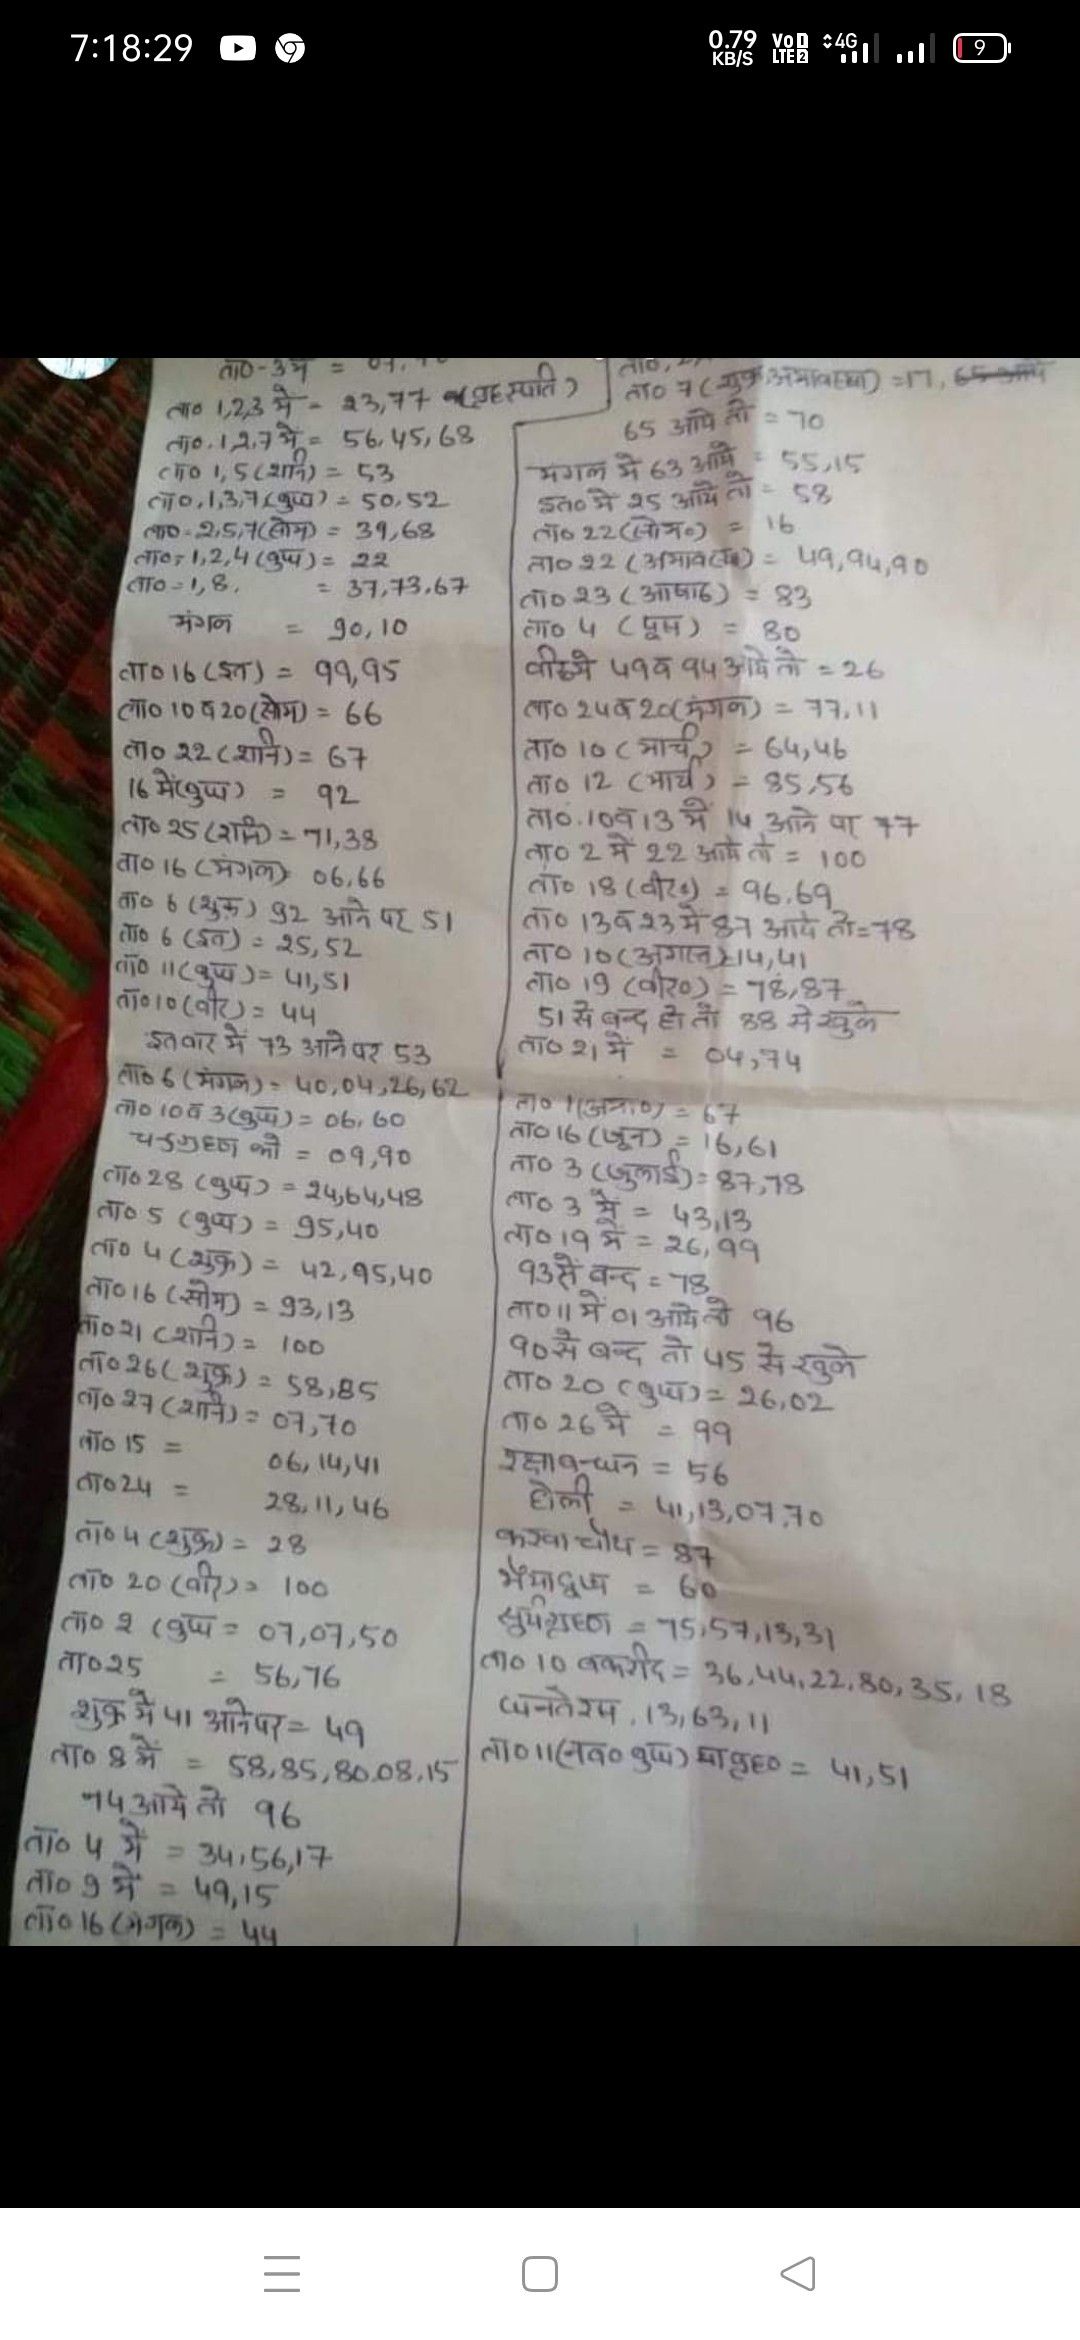 7:18:29
0.79 KB/S
Vo LTE 2
4G
9
ता0-3में = 07,70
ता0 1,2,3 में = 23,77 (वृहस्पति)
ता0.1,2,7 में = 56,45,68
ता0 1,5 (शनि) = 53
ता0.1,3,7(बुध) = 50,52
ता0-2,5,7(सोम) = 39,68
ता0-1,2,4(बुध) = 22
ता0-1,8. = 37,73,67
मंगल = 90,10
ता0 16 (इत) = 99,95
ता0 10 व 20(सोम) = 66
ता0 22 (शनि) = 67
16 में(बुध) = 92
ता0 25 (शनि) = 71,38
ता0 16 (मंगल) 06,66
ता0 6 (शुक्र) 92 आने पर 51
ता0 6 (इत) = 25,52
ता0 11(बुध) = 41,51
ता0 10 (वीर) = 44
इतवार में 73 आने पर 53
ता0 6 (मंगल) = 40,04,26,62
ता0 10 व 3(बुध) = 06,60
चन्द्रग्रहण को = 09,90
ता0 28 (बुध) = 24,64,48
ता0 5 (बुध) = 95,40
ता0 4 (शुक्र) = 42,95,40
ता0 16 (सोम) = 93,13
ता0 21 (शनि) = 100
ता0 26 (शुक्र) = 58,85
ता0 27 (शनि) = 07,70
ता0 15 = 06,14,41
ता0 24 = 28,11,46
ता0 4 (शुक्र) = 28
ता0 20 (वीर) = 100
ता0 2 (बुध = 07,07,50
ता0 25 = 56,76
शुक्र में 41 आने पर = 49
ता0 8 में = 58,85,80,08,15
94 आये तो 96
ता0 4 में = 34,56,17
ता0 9 में = 49,15
ता0 16 (मंगल) = 44
ता0 7 (शुक्र अमावस्या) = 17,
65 आये तो = 70
मंगल में 63 आये = 55,15
इत0 में 25 आये तो = 58
ता0 22 (सोम0) = 16
ता0 22 (अमावस्या) = 49,94,90
ता0 23 (आषाढ) = 83
ता0 4 (पूस) = 80
49 व 94 आये तो = 26
ता0 24 व 20(मंगल) = 77,11
ता0 10 (मार्च) = 64,46
ता0 12 (मार्च) = 85,56
ता0.10 व 13 में 14 आने पर 77
ता0 2 में 22 आये तो = 100
ता0 18 (वीर0) = 96,69
ता0 13 व 23 में 87 आये तो = 78
ता0 10 (अगस्त) = 14,41
ता0 19 (वीर0) = 78,87
51 से बन्द हो तो 88 से खुले
ता0 21 में = 04,74
ता0 1 = 67
ता0 16 (जून) = 16,61
ता0 3 (जुलाई) = 87,78
ता0 3 में = 43,13
ता0 19 में = 26,99
93 से बन्द = 78
ता0 11 में 01 आये तो 96
90 से बन्द तो 45 से खुले
ता0 20 (बुध) = 26,02
ता0 26 में = 99
रक्षाबन्धन = 56
होली = 41,13,07,70
करवा चौथ = 87
भैयादूज = 60
सूर्यग्रहण = 75,57,13,31
ता0 10 बकरीद = 36,44,22,80,35,18
धनतेरस. 13,63,11
ता0 11(नव0 बुध) या वृह0 = 41,51